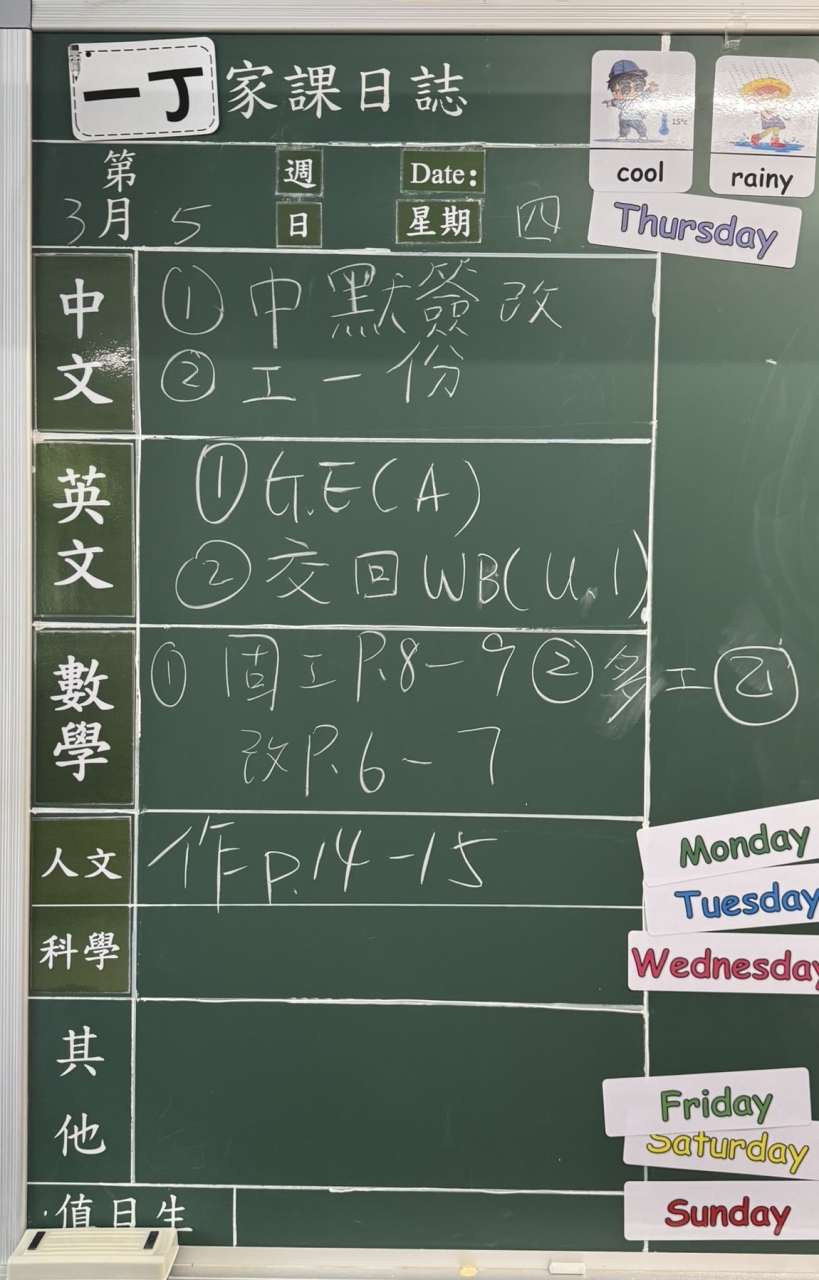 一丁 家課日誌
15°c
cool
rainy
第 週 Date:
3月 5 日 星期 四
Thursday
中文
① 中默簽改
② 工一份
英文
① G.E(A)
② 交回WB(U.1)
數學
① 固工P.8-9 ② 多工②
改P.6-7
人文
作P.14-15
科學
其他
值日生
Monday
Tuesday
Wednesday
Friday
Saturday
Sunday